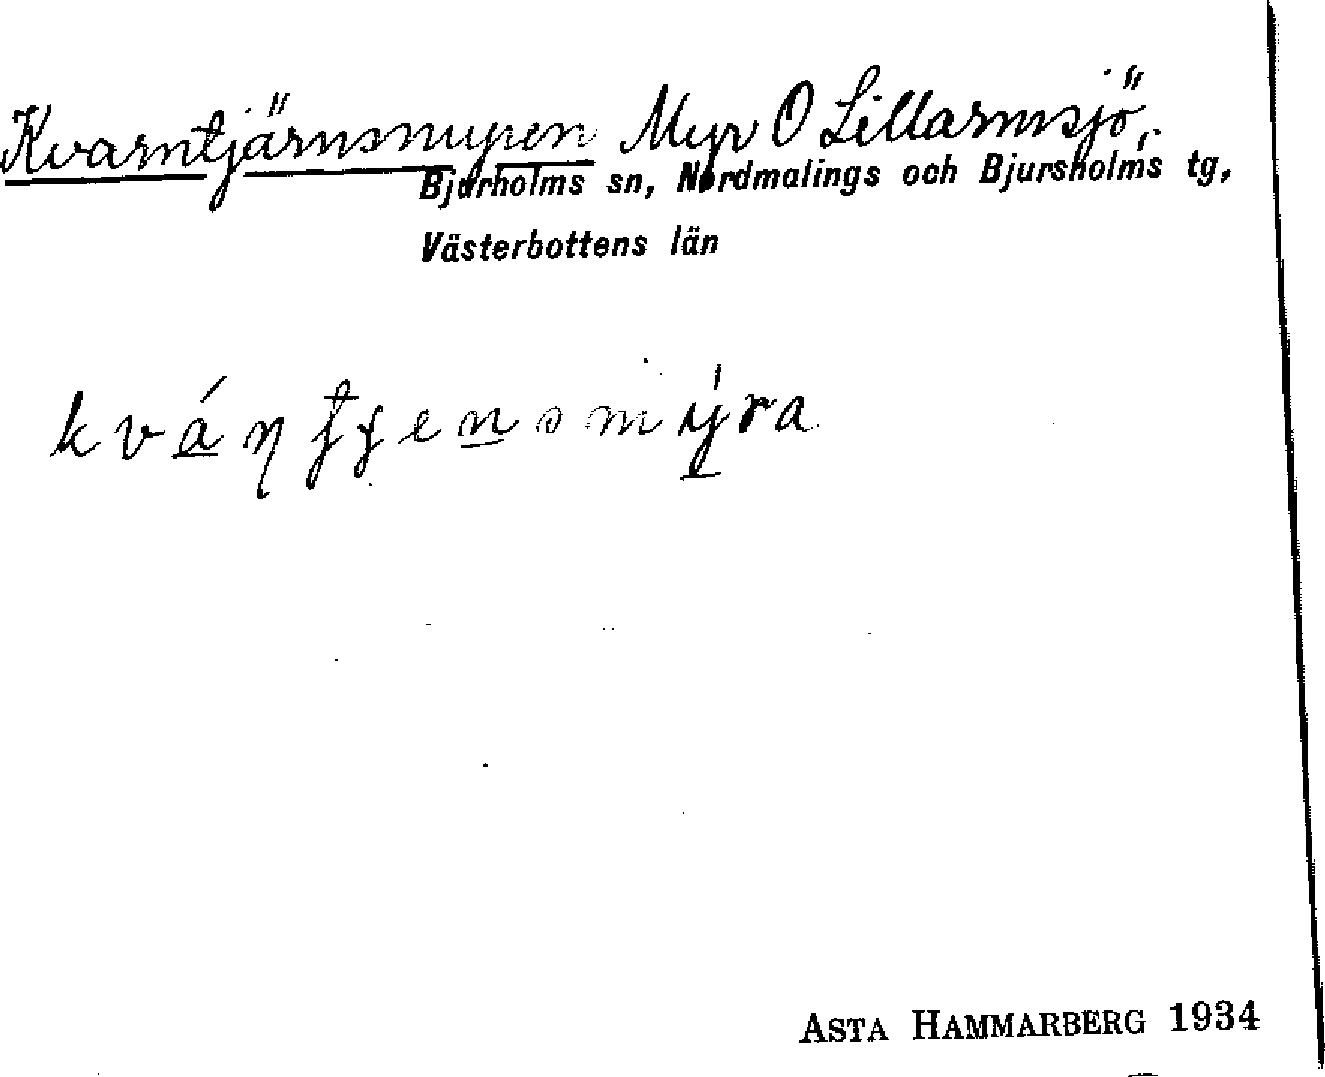 Kvarntjärnsmyren Myr O Lillarmsjö,
Bjurholms sn, Nordmalings och Bjursholms tg,
Västerbottens län
ASTA HAMMARBERG 1934